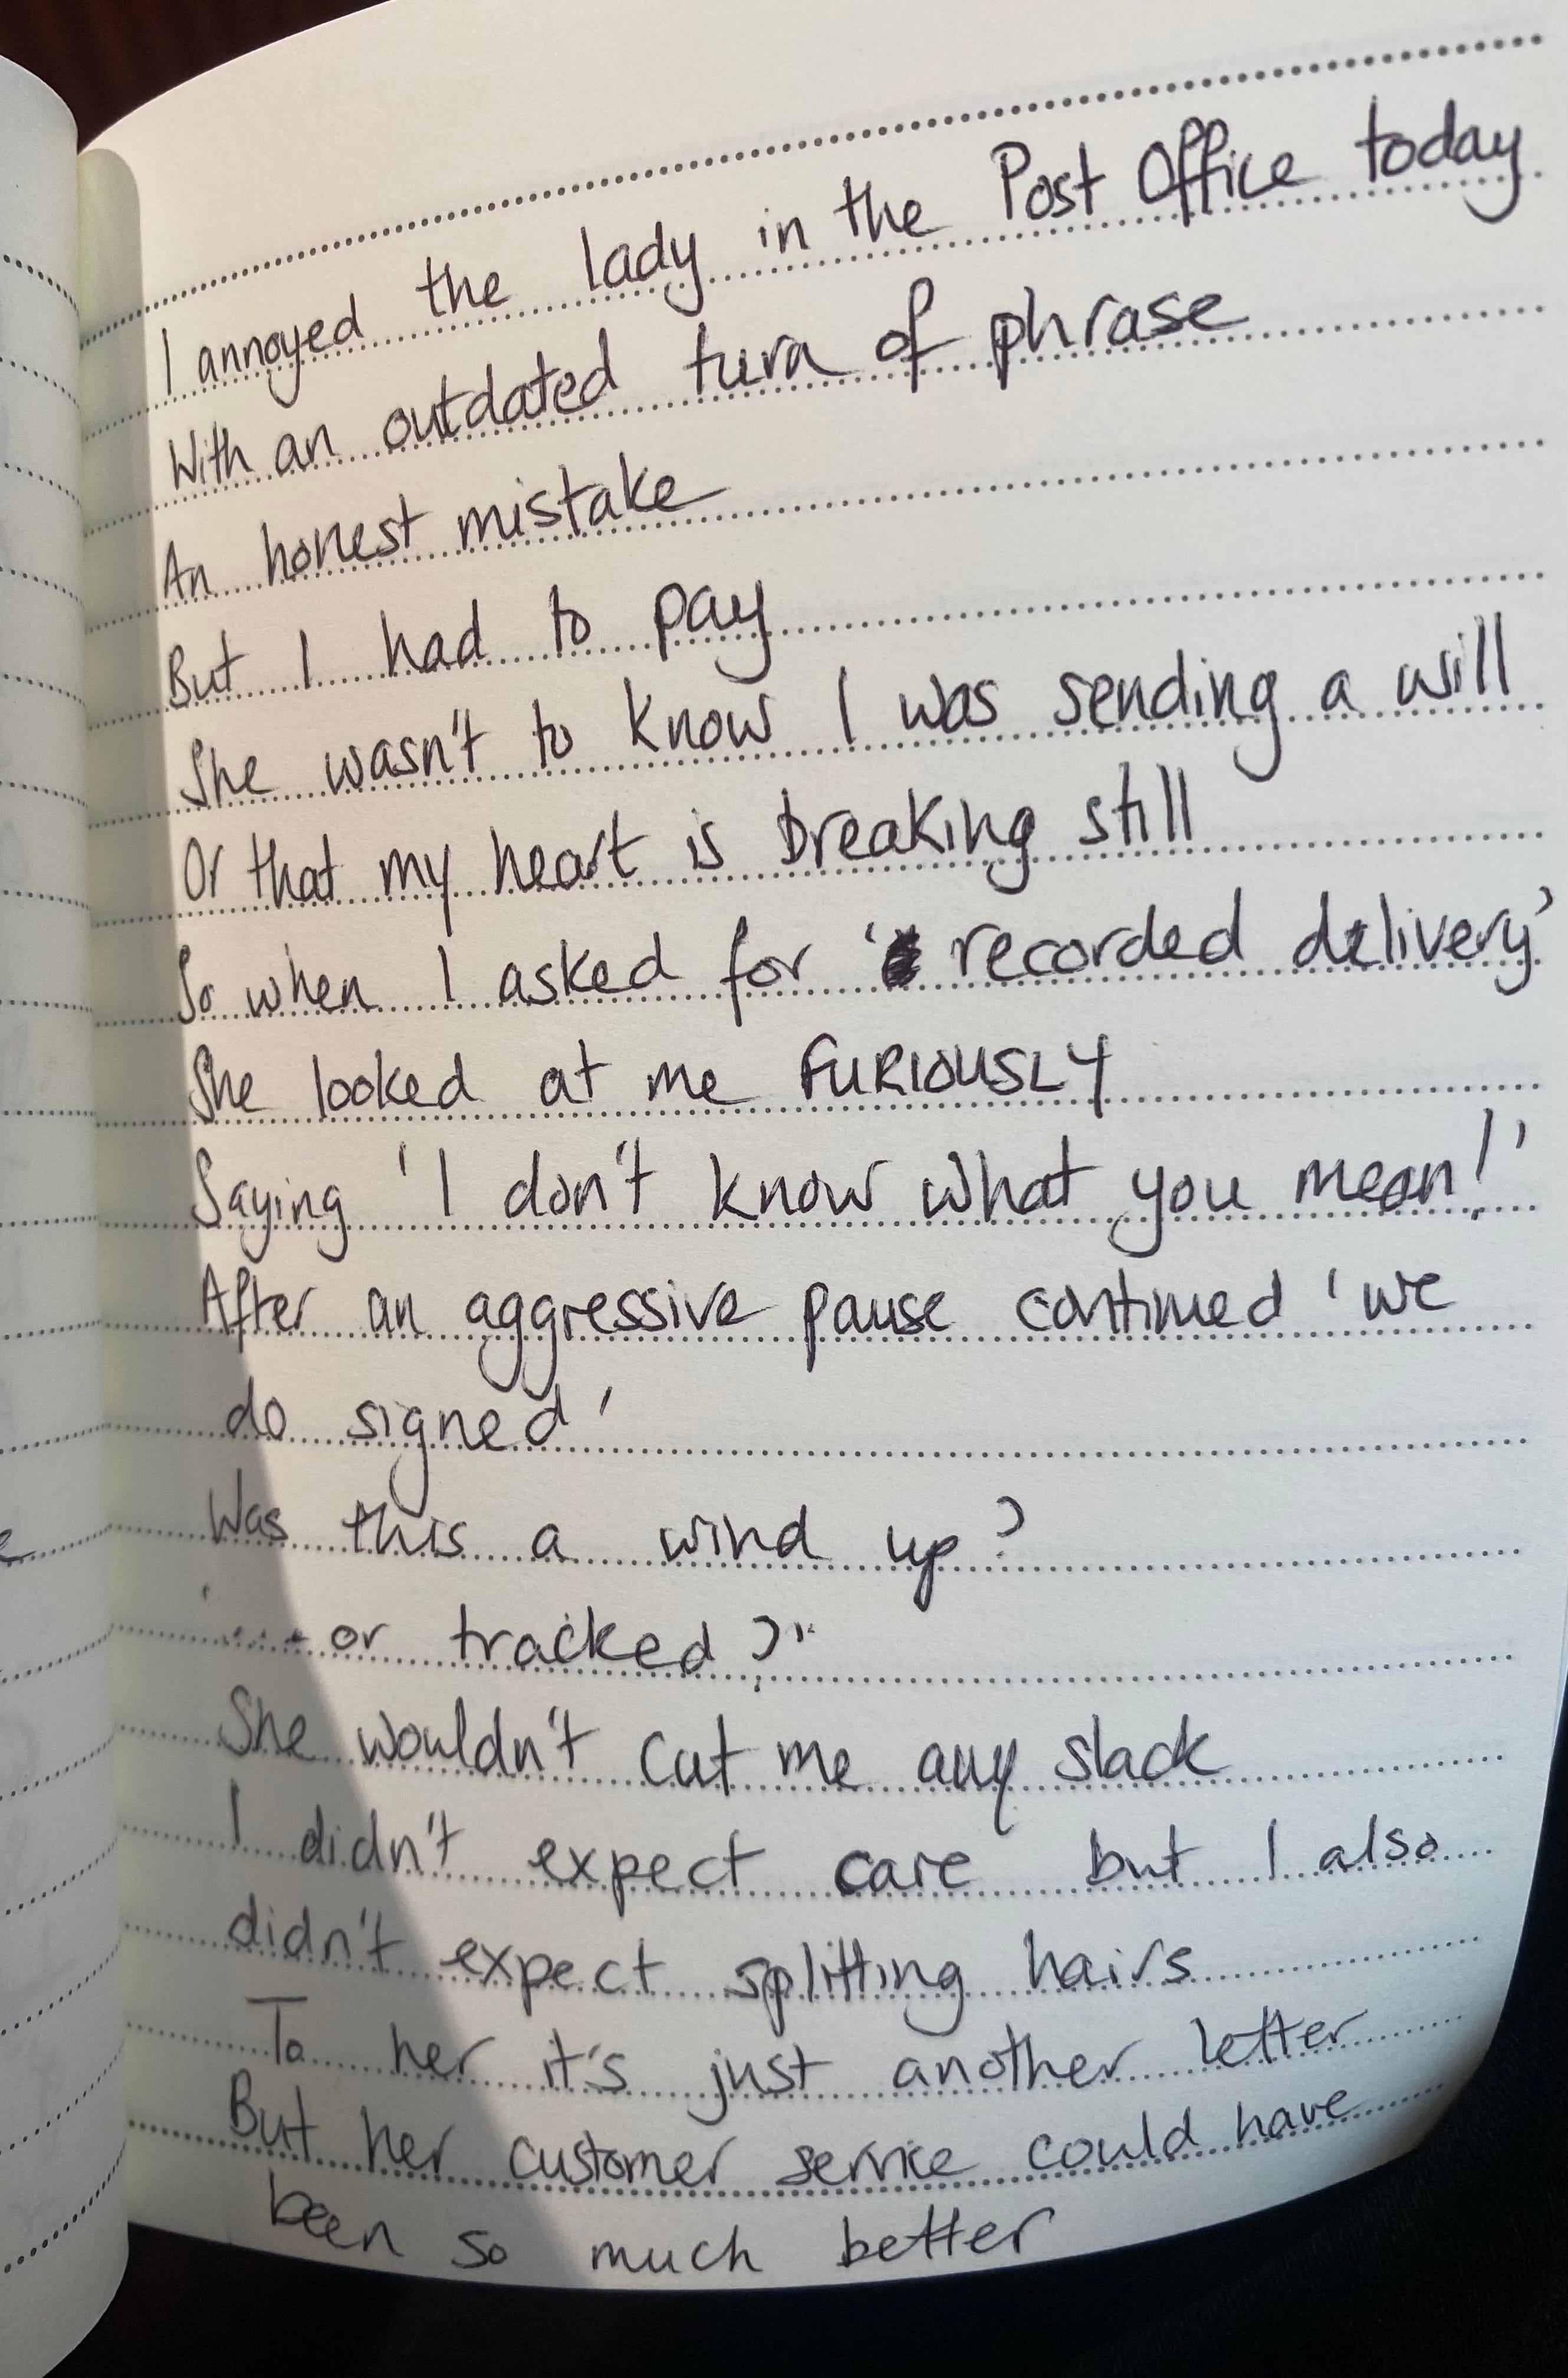 I annoyed the lady in the Post Office today
With an outdated turn of phrase
An honest mistake
But I had to pay
She wasn't to know I was sending a will
Or that my heart is breaking still
So when I asked for 'recorded delivery'
She looked at me FURIOUSLY
Saying 'I don't know what you mean!'
After an aggressive pause continued 'we
do signed'
Was this a wind up?
'.... or tracked?'
She wouldn't cut me any slack
I didn't expect care but I also
didn't expect splitting hairs
To her it's just another letter
But her customer service could have
been so much better